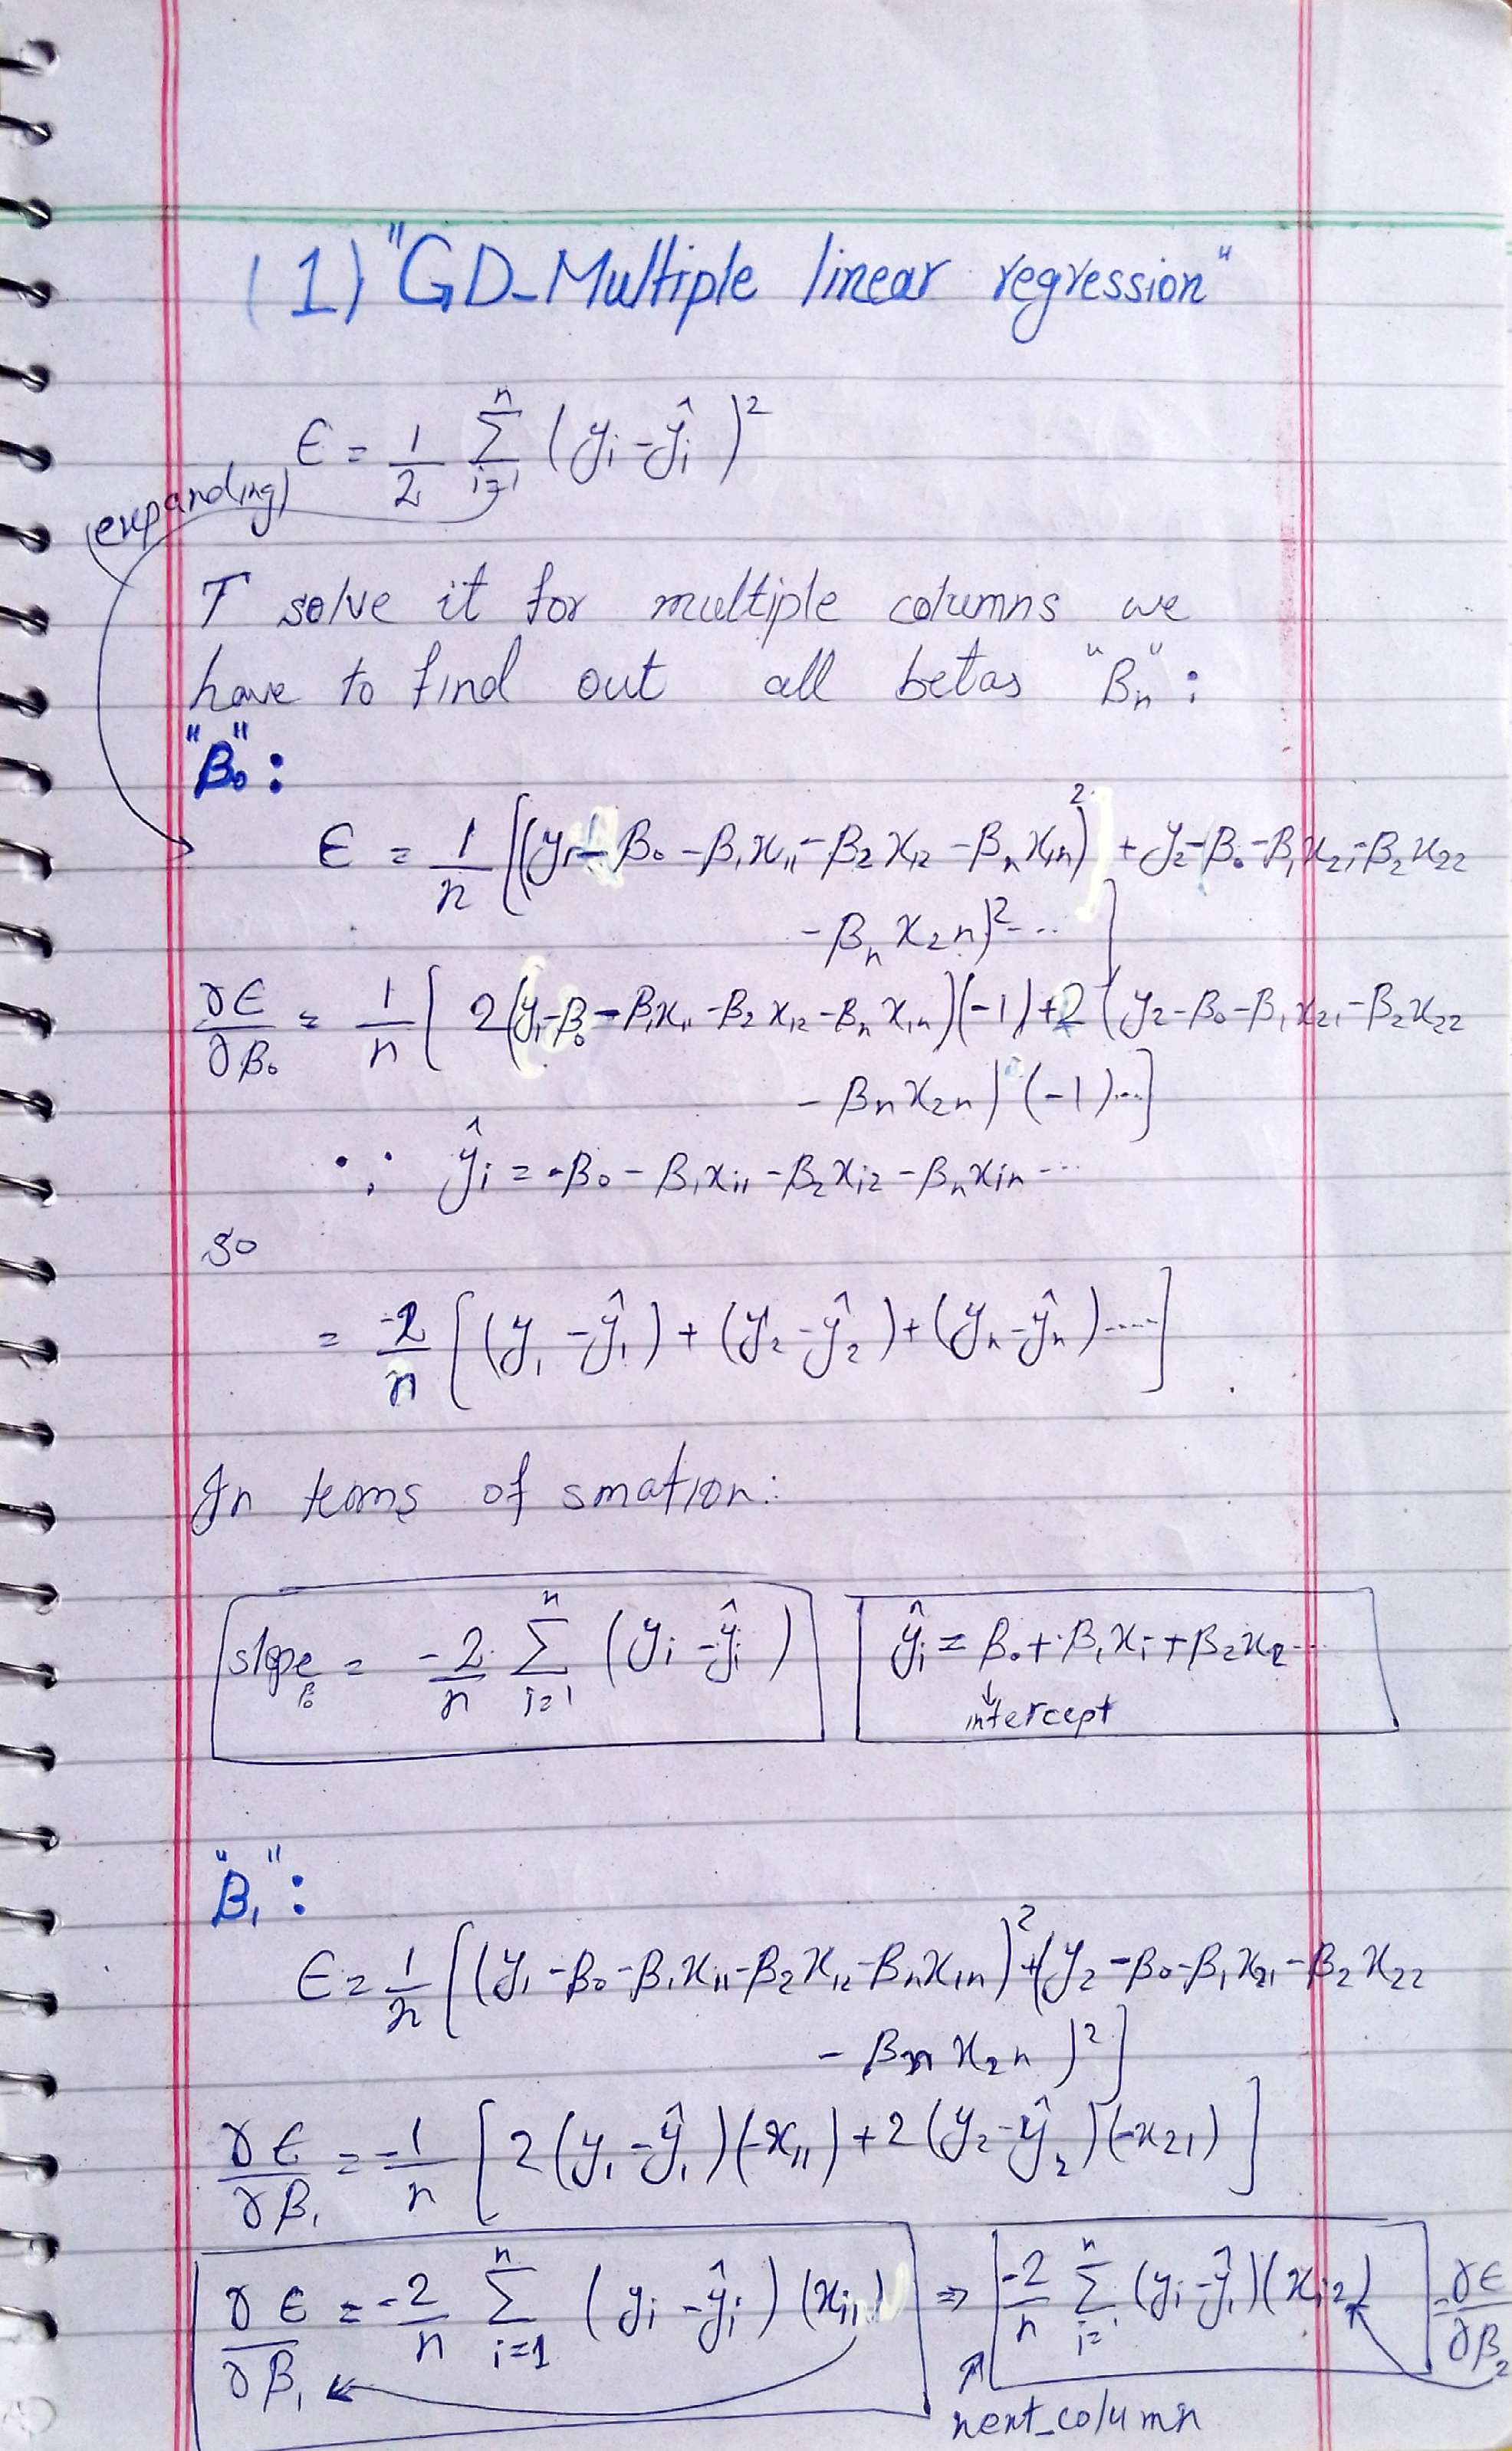 (1) "GD-Multiple linear regression"
ϵ = 1/2 Σ_{i=1}^{n} (yi - ŷi)²
(expanding)
T solve it for multiple columns we
have to find out all betas "βn":
"β₀":
ϵ = 1/n [(y₁ - β₀ - β₁x₁₁ - β₂x₁₂ - βₙx₁ₙ)² + y₂ - β₀ - β₁x₂₁ - β₂x₂₂
- βₙx₂ₙ)² ... ]
∂ϵ/∂β₀ = 1/n [ 2(y₁ - β₀ - β₁x₁₁ - β₂x₁₂ - βₙx₁ₙ)(-1) + 2(y₂ - β₀ - β₁x₂₁ - β₂x₂₂
- βₙx₂ₙ)(-1)...]
∵ ŷi = -β₀ - β₁xi₁ - β₂xi₂ - βₙxiₙ ...
so
= -2/n [(y₁ - ŷ₁) + (y₂ - ŷ₂) + (yₙ - ŷₙ).....]
In terms of smation:
slope β₀ = -2/n Σ_{i=1}^{n} (yi - ŷi)
ŷi = β₀ + β₁xi + β₂x₂...
↓
intercept
"β₁":
ϵ = 1/n [(y₁ - β₀ - β₁x₁₁ - β₂x₁₂ - βₙx₁ₙ)² + (y₂ - β₀ - β₁x₂₁ - β₂x₂₂
- βₙx₂ₙ)²]
∂ϵ/∂β₁ = -1/n [2(y₁ - ŷ₁)(-x₁₁) + 2(y₂ - ŷ₂)(-x₂₁)]
∂ϵ/∂β₁ = -2/n Σ_{i=1}^{n} (yi - ŷi)(xi₁) ⇒ -2/n Σ_{i=1}^{n} (yi - ŷi)(xi₂) = ∂ϵ/∂β₂
next_column